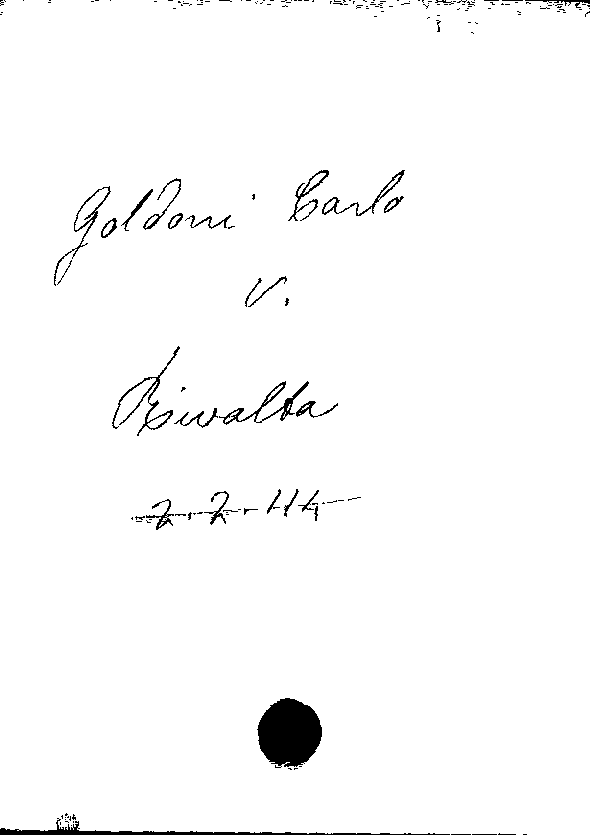 Goldoni Carlo
v.
Rivalta
2.2.44